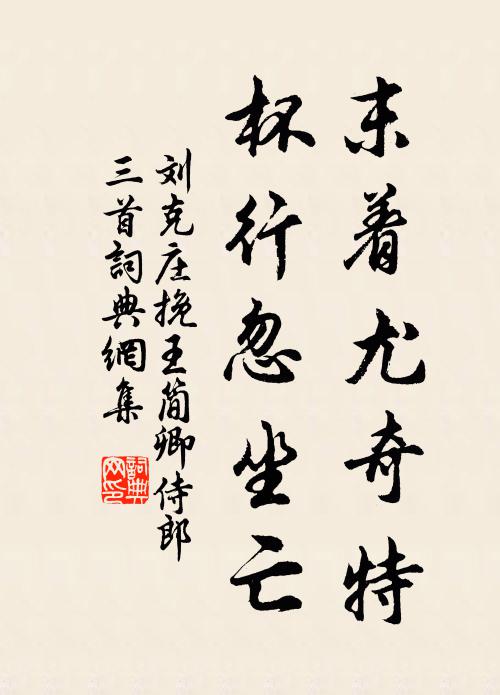 末着尤奇特
杯行忽坐亡
刘克庄挽王简卿侍郎
三首詞典網集
詞典網印